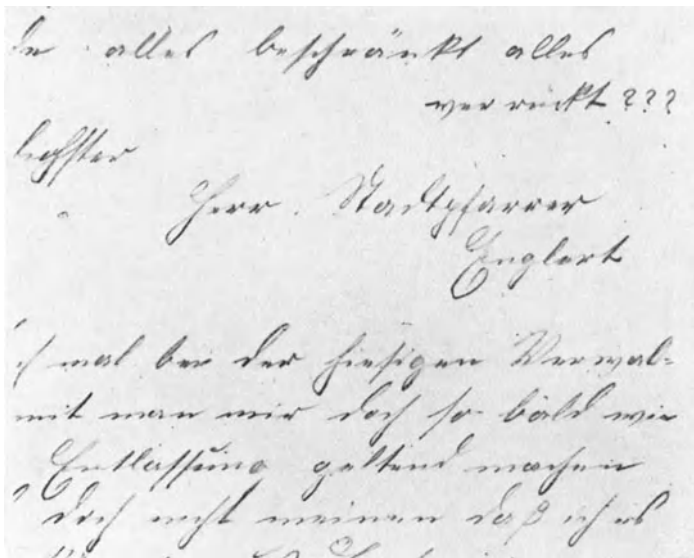 de alles beschränkt alles
verrückt ???
lichster
Herr Stadtpfarrer
Englert
mal bei der hiesigen Verwal=
mit man mir doch so bald wie
Entlassung geltend machen
doch nicht meinen daß ich es